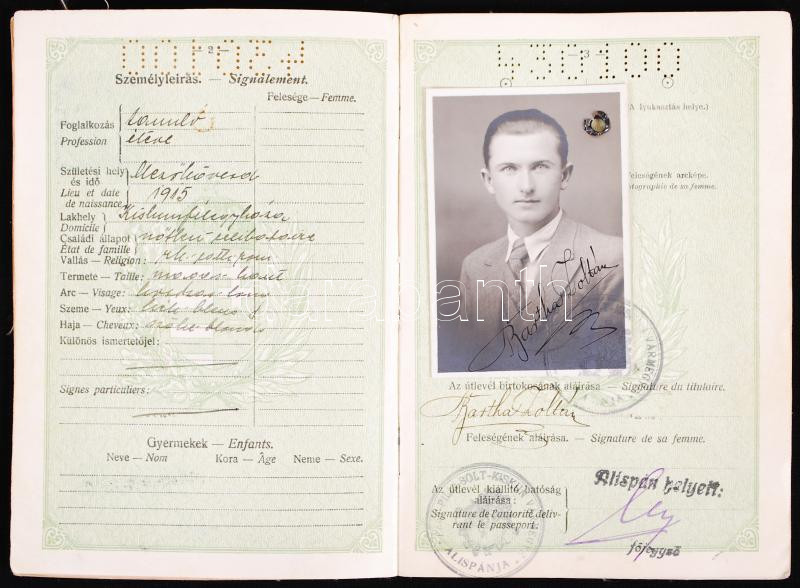 — 2 —
Személyleirás. — Signalement.
Felesége — Femme.
Foglalkozás tanuló
Profession élève
Születési hely Mezőkövesd
és idő
Lieu et date 1915
de naissance:
Lakhely Kiskunfélegyháza
Domicile
Családi állapot nőtlen célibataire
État de famille
Vallás — Religion: rk. cath. rom
Termete — Taille: magas haut
Arc — Visage:
Szeme — Yeux: kék bleus
Haja — Cheveux: szőke blonds
Különös ismertetőjel:
Signes particuliers:
Gyermekek — Enfants.
Neve — Nom Kora — Âge Neme — Sexe.
— 3 —
436100
(A lyukasztás helye.)
Feleségének arcképe.
Photographie de sa femme.
Bartha Zoltán
Az útlevél birtokosának aláírása. — Signature du titulaire.
Bartha Zoltán
Feleségének aláírása. — Signature de sa femme.
Az útlevél kiállító hatóság
aláírása:
Signature de l'autorité déliv-
rant le passeport:
Alispán helyett:
főjegyző
SOLT-KISKUN
ALISPÁNJA
VÁRMEGY